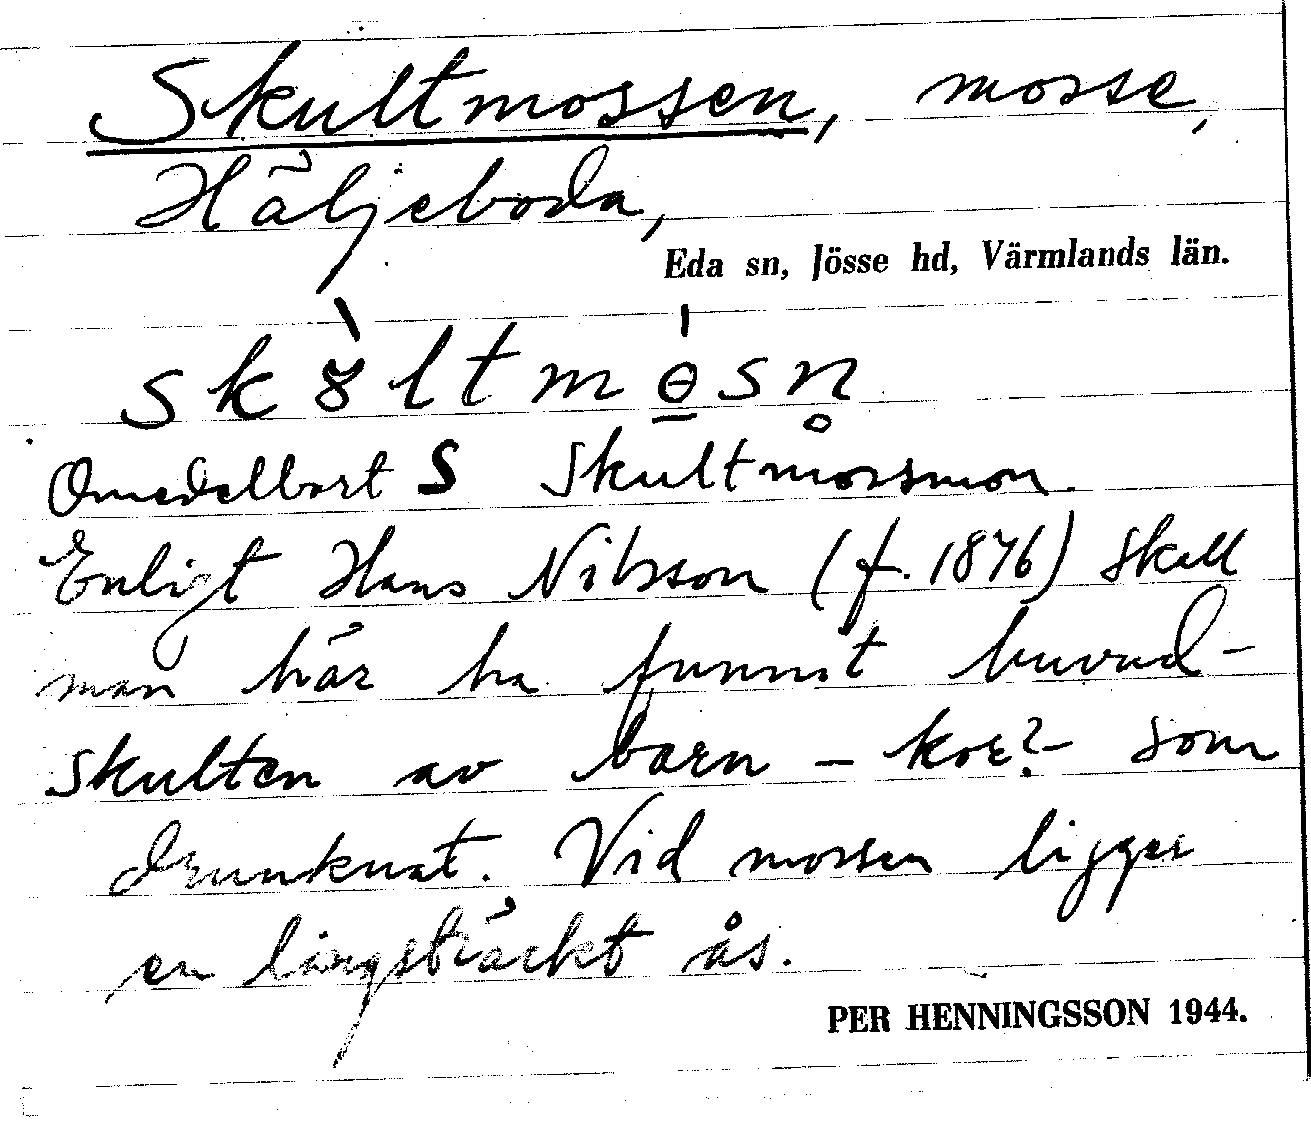 Skultmossen, mosse,
Häljeboda,
Eda sn, Jösse hd, Värmlands län.
sk8̀ltmɵ̠́sn̥
Omedelbart S Skultmossmon.
Enligt Hans Nilsson (f. 1876) skall
man här ha funnit huvud-
skulten av barn – kor? – som
drunknat. Vid mossen ligger
en långsträckt ås.
PER HENNINGSSON 1944.